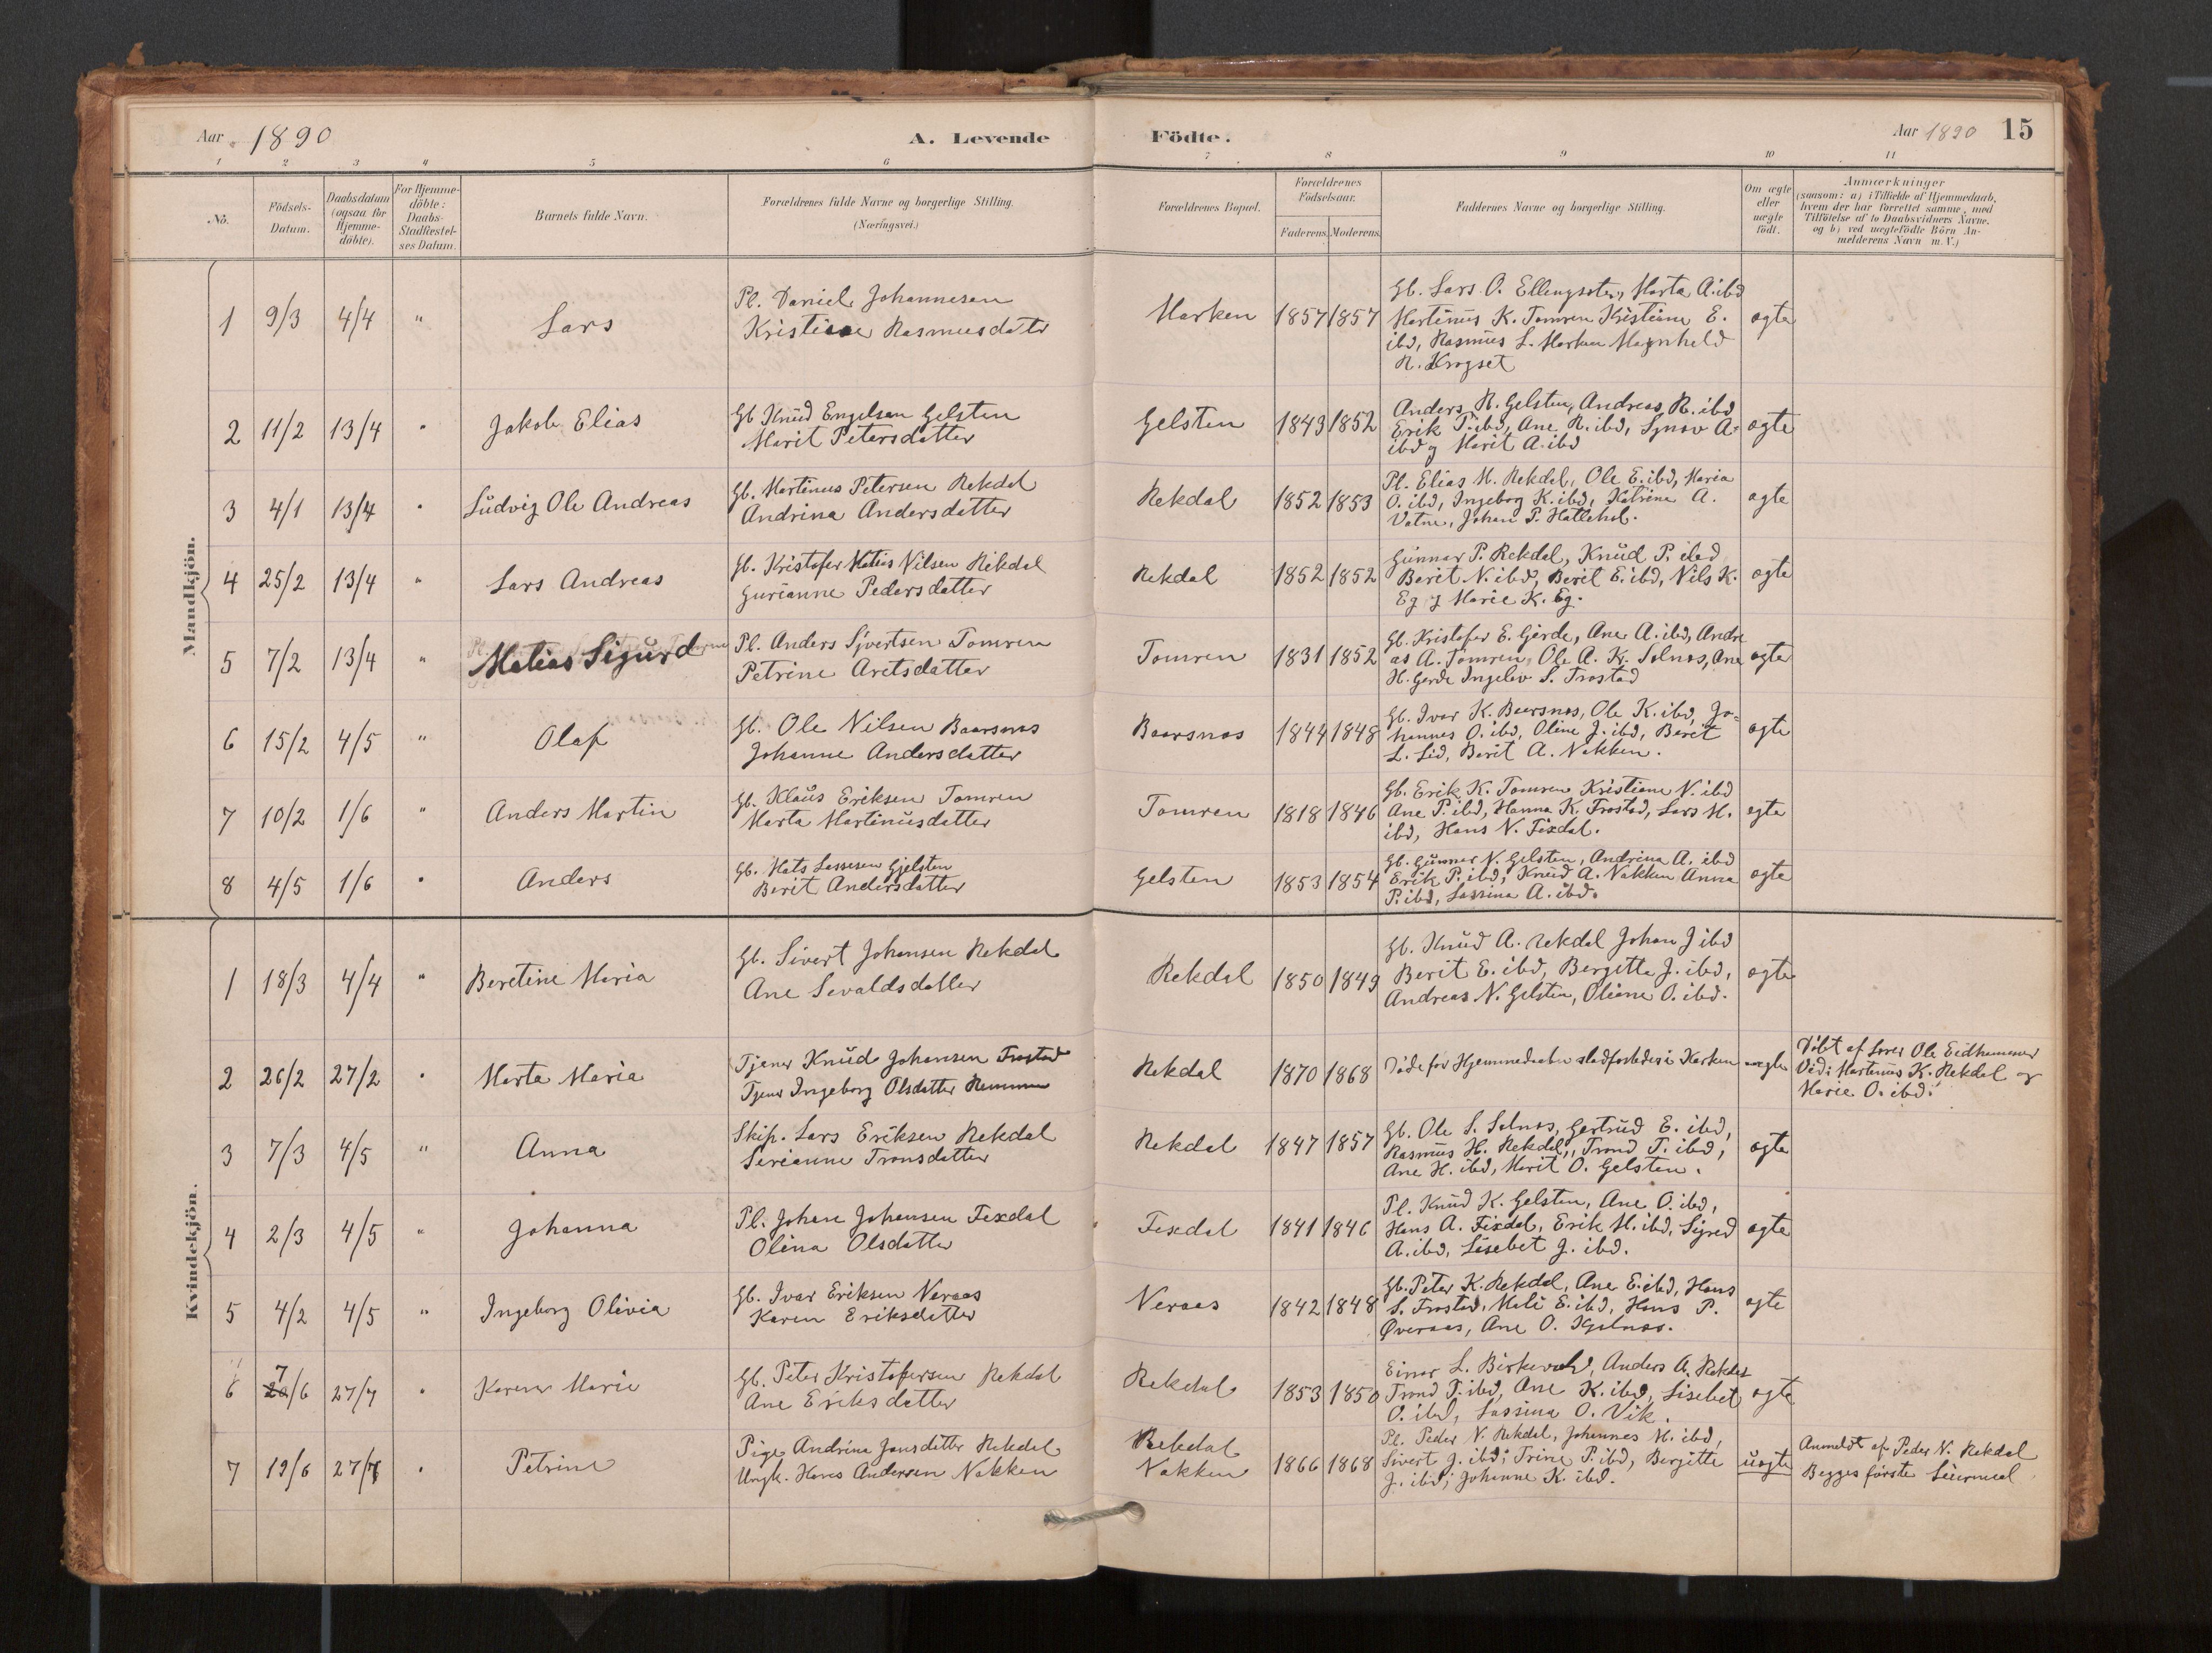 Aar 1890
A. Levende
Födte.
Aar 1890 15
1 2 3 4 5 6 7 8 9 10 11
No.
Födsels-
Datum.
Daabsdatum
(ogsaa for
Hjemme-
döbte).
For Hjemme-
döbte:
Daabs-
Stadfæstel-
ses Datum.
Barnets fulde Navn.
Forældrenes fulde Navne og borgerlige Stilling.
(Næringsvei.)
Forældrenes Bopæl.
Forældrenes
Födselsaar.
Faderens. Moderens.
Faddernes Navne og borgerlige Stilling.
Om ægte
eller
uægte
födt.
Anmærkninger
(saasom: a) i Tilfælde af Hjemmedaab,
hvem der har forrettet samme, med
Tilföielse af to Daabsvidners Navne.
og b) ved uægtefödte Börn An-
melderens Navn m. V.)
Mandkjön.
1 9/3 4/4 " Lars
Pl. Daniel Johannesen
Kristine Rasmusdatr
Harken 1857 1857
Gb. Lars O. Ellingsæter, Marta A. ibd
Martinus K. Tomren Kristiane E.
ibd, Rasmus L. Harken Magnhild
R. Krogset
ægte
2 11/2 13/4 " Jakob Elias
Gb Knud Engelsen Gelsten
Marit Petersdatter
Gelsten 1843 1852
Anders R. Gelsten, Andreas R. ibd
Erik P. ibd, Ane R. ibd, Synøv A.
ibd og Marit A. ibd
ægte
3 4/1 13/4 " Ludvig Ole Andreas
Gb. Martinus Petersen Rekdal
Andrina Andersdatter
Rekdal 1852 1853
Pl. Elias M. Rekdal, Ole E. ibd, Maria
O. ibd, Ingeborg K. ibd, Katrine A.
Vatne, Johan P. Hatlehol.
ægte
4 25/2 13/4 " Lars Andreas
Gb. Kristofer Matias Nilsen Rekdal
Gurianne Pedersdatter
Rekdal 1852 1852
Gunnar P. Rekdal, Knud P. ibd
Berit N. ibd, Berit E. ibd, Nils K.
Eg og Marie K. Eg.
ægte
5 7/2 13/4 " Matias Sigurd
Pl. Anders Sjvertsen Tomren
Petrine Aretsdatter
Tomren 1831 1852
Gb. Kristofer E. Gjerde, Ane A. ibd, Andre
as A. Tomren, Ole A. K. Solnæs, Ane
H. Gerde Ingelev S. Frostad
ægte
6 15/2 4/5 " Olaf
Gb. Ole Nilsen Baarsnæs
Johanne Andersdatter
Baarsnæs 1844 1848
Gb. Ivar K. Baarsnæs, Ole K. ibd, Jo-
hannes O. ibd, Oline J. ibd, Berit
L. Lid, Berit A. Nakken.
ægte
7 10/2 1/6 " Anders Martin
Gb. Klaus Eriksen Tomren
Marta Martinusdatter
Tomren 1818 1846
Gb. Erik K. Tomren Kristiane N. ibd
Ane P. ibd, Hanna K. Frostad, Lars M.
ibd, Hans N. Fixdal.
ægte
8 4/5 1/6 " Anders
Gb. Mats Lassesen Gjelsten
Berit Andersdatter
Gelsten 1853 1854
Gb. Gunnar N. Gelsten, Andrina A. ibd
Erik P. ibd, Knud A. Nakken Anna
P. ibd, Lassina A. ibd.
ægte
Kvindekjön.
1 18/3 4/4 " Beretine Maria
Gb. Sivert Johansen Rekdal
Ane Sevaldsdatter
Rekdal 1850 1849
Gb. Knud A. Rekdal Johan J ibd
Berit E. ibd, Bergitta J. ibd,
Andreas N. Gelsten, Oliane O. ibd.
ægte
2 26/2 27/2 " Marta Maria
Tjener Knud Johansen Frostad
Tjener Ingeborg Olsdatter Remmem
Rekdal 1870 1868
Døde før Hjemmedaaben stadfæstedes i Kirken
uægte
Døbt af Lærer Ole Eidhammer
Vid: Martinus K. Rekdal og
Marie O. ibd.
3 7/3 4/5 " Anna
Skip. Lars Eriksen Rekdal
Serianne Tronsdatter
Rekdal 1847 1857
Gb. Ole S. Solnæs, Gertrud E. ibd,
Rasmus H. Rekdal, Trond T. ibd,
Ane H. ibd, Marit O. Gelsten.
ægte
4 2/3 4/5 " Johanna
Pl. Johan Johansen Fixdal
Olina Olsdatter
Fixdal 1841 1846
Pl. Knud K. Gelsten, Ane O. ibd,
Hans A. Fixdal, Erik M. ibd, Sigred
A. ibd, Lisebet J. ibd.
ægte
5 4/2 4/5 " Ingeborg Olivia
Gb. Ivar Eriksen Neraas
Karen Eriksdatter
Neraas 1842 1848
Gb. Peter K. Rekdal, Ane E. ibd, Hans
S. Frostad, Mali E. ibd, Hans P.
Øveraas, Ane O. Kjelnæs.
ægte
6 7/6 27/7 " Karen Marie
Gb. Peter Kristofersen Rekdal
Ane Eriksdatter
Rekdal 1853 1850
Einar L. Birkevold, Anders A. Rekdal
Trond T. ibd, Ane K. ibd, Lisebet
O. ibd, Lassina O. Vik.
ægte
7 19/6 27/7 " Petrine
Pige Andrine Jansdatter Rekdal
Ungk. Hans Andersen Nakken
Rekdal
Nakken
1866 1868
Pl. Peder N. Rekdal, Johannes M. ibd,
Sivert J. ibd; Trine P. ibd, Bergitte
J. ibd; Johanne K. ibd.
uægte
Anmeldt af Peder N. Rekdal
Begges første Leiermaal